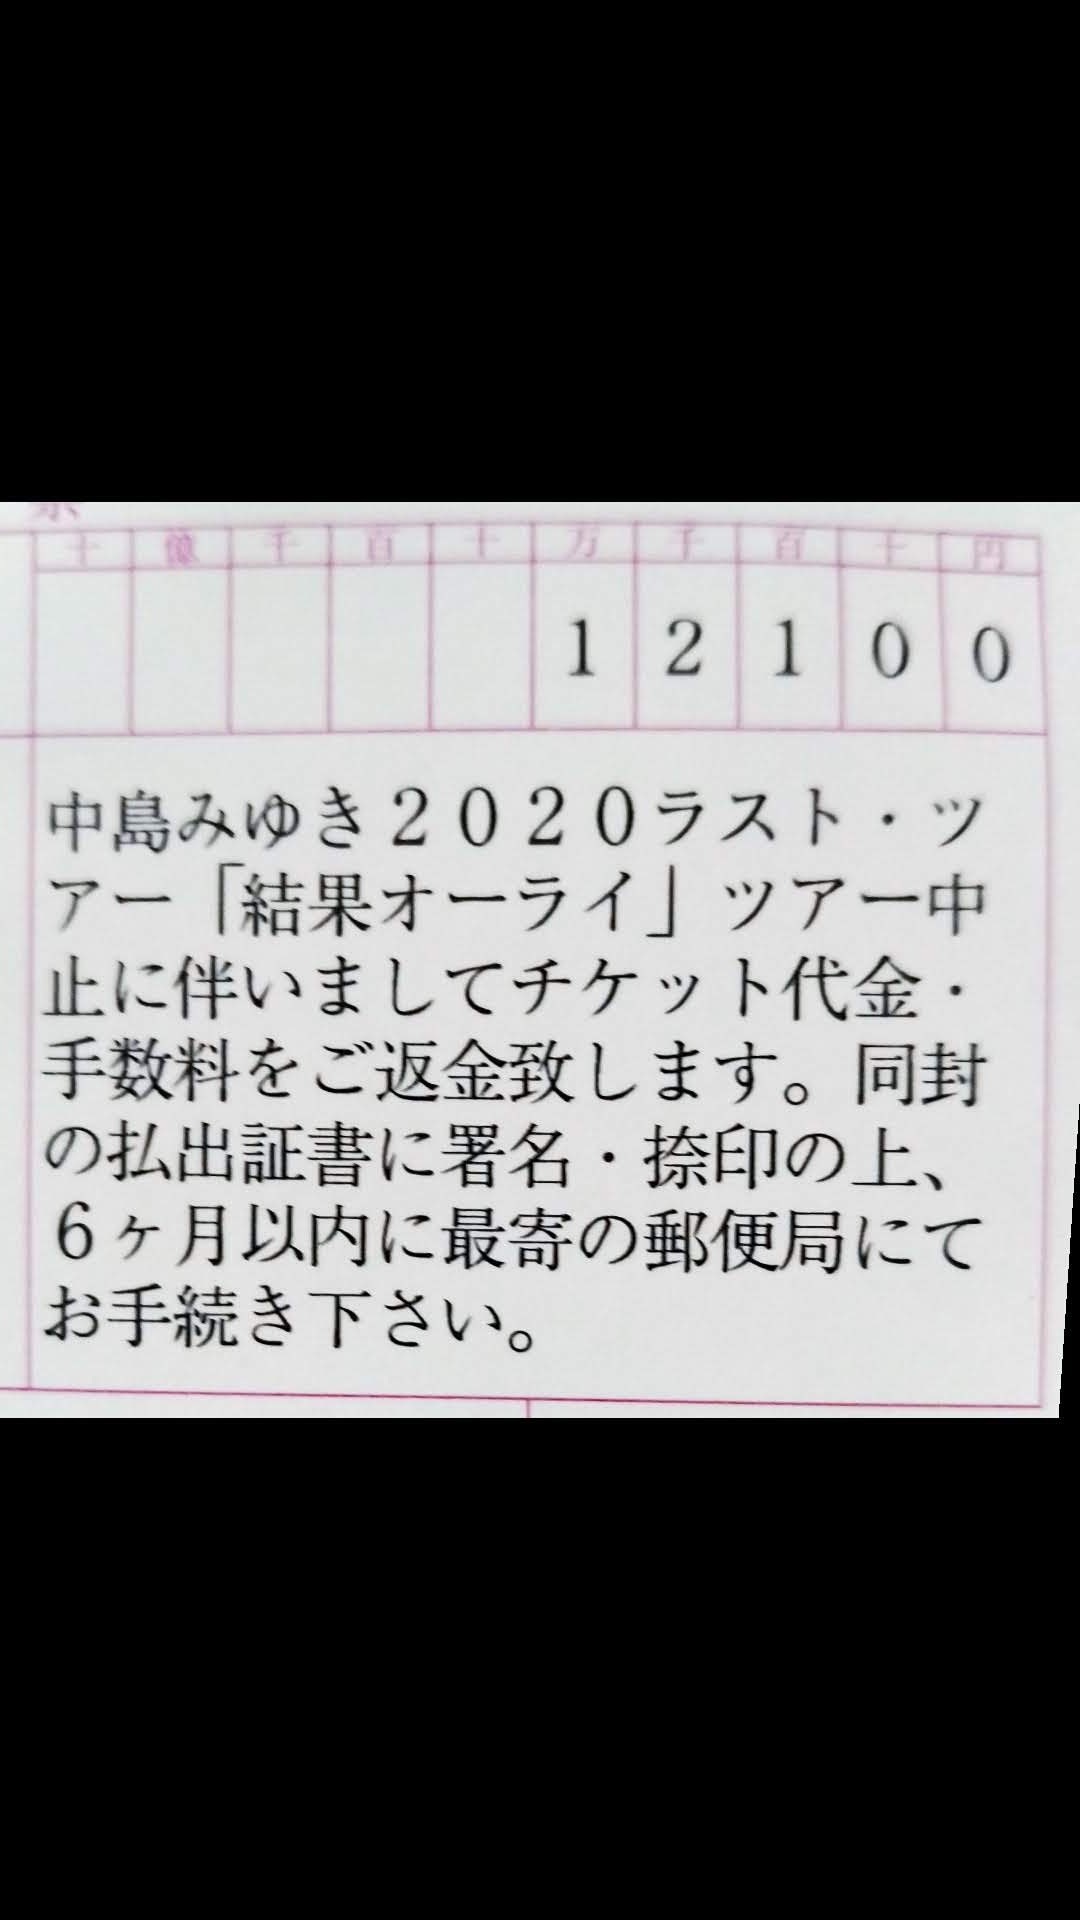 十 億 千 百 十 万 千 百 十 円
1 2 1 0 0
中島みゆき２０２０ラスト・ツ
アー「結果オーライ」ツアー中
止に伴いましてチケット代金・
手数料をご返金致します。同封
の払出証書に署名・捺印の上、
６ヶ月以内に最寄の郵便局にて
お手続き下さい。